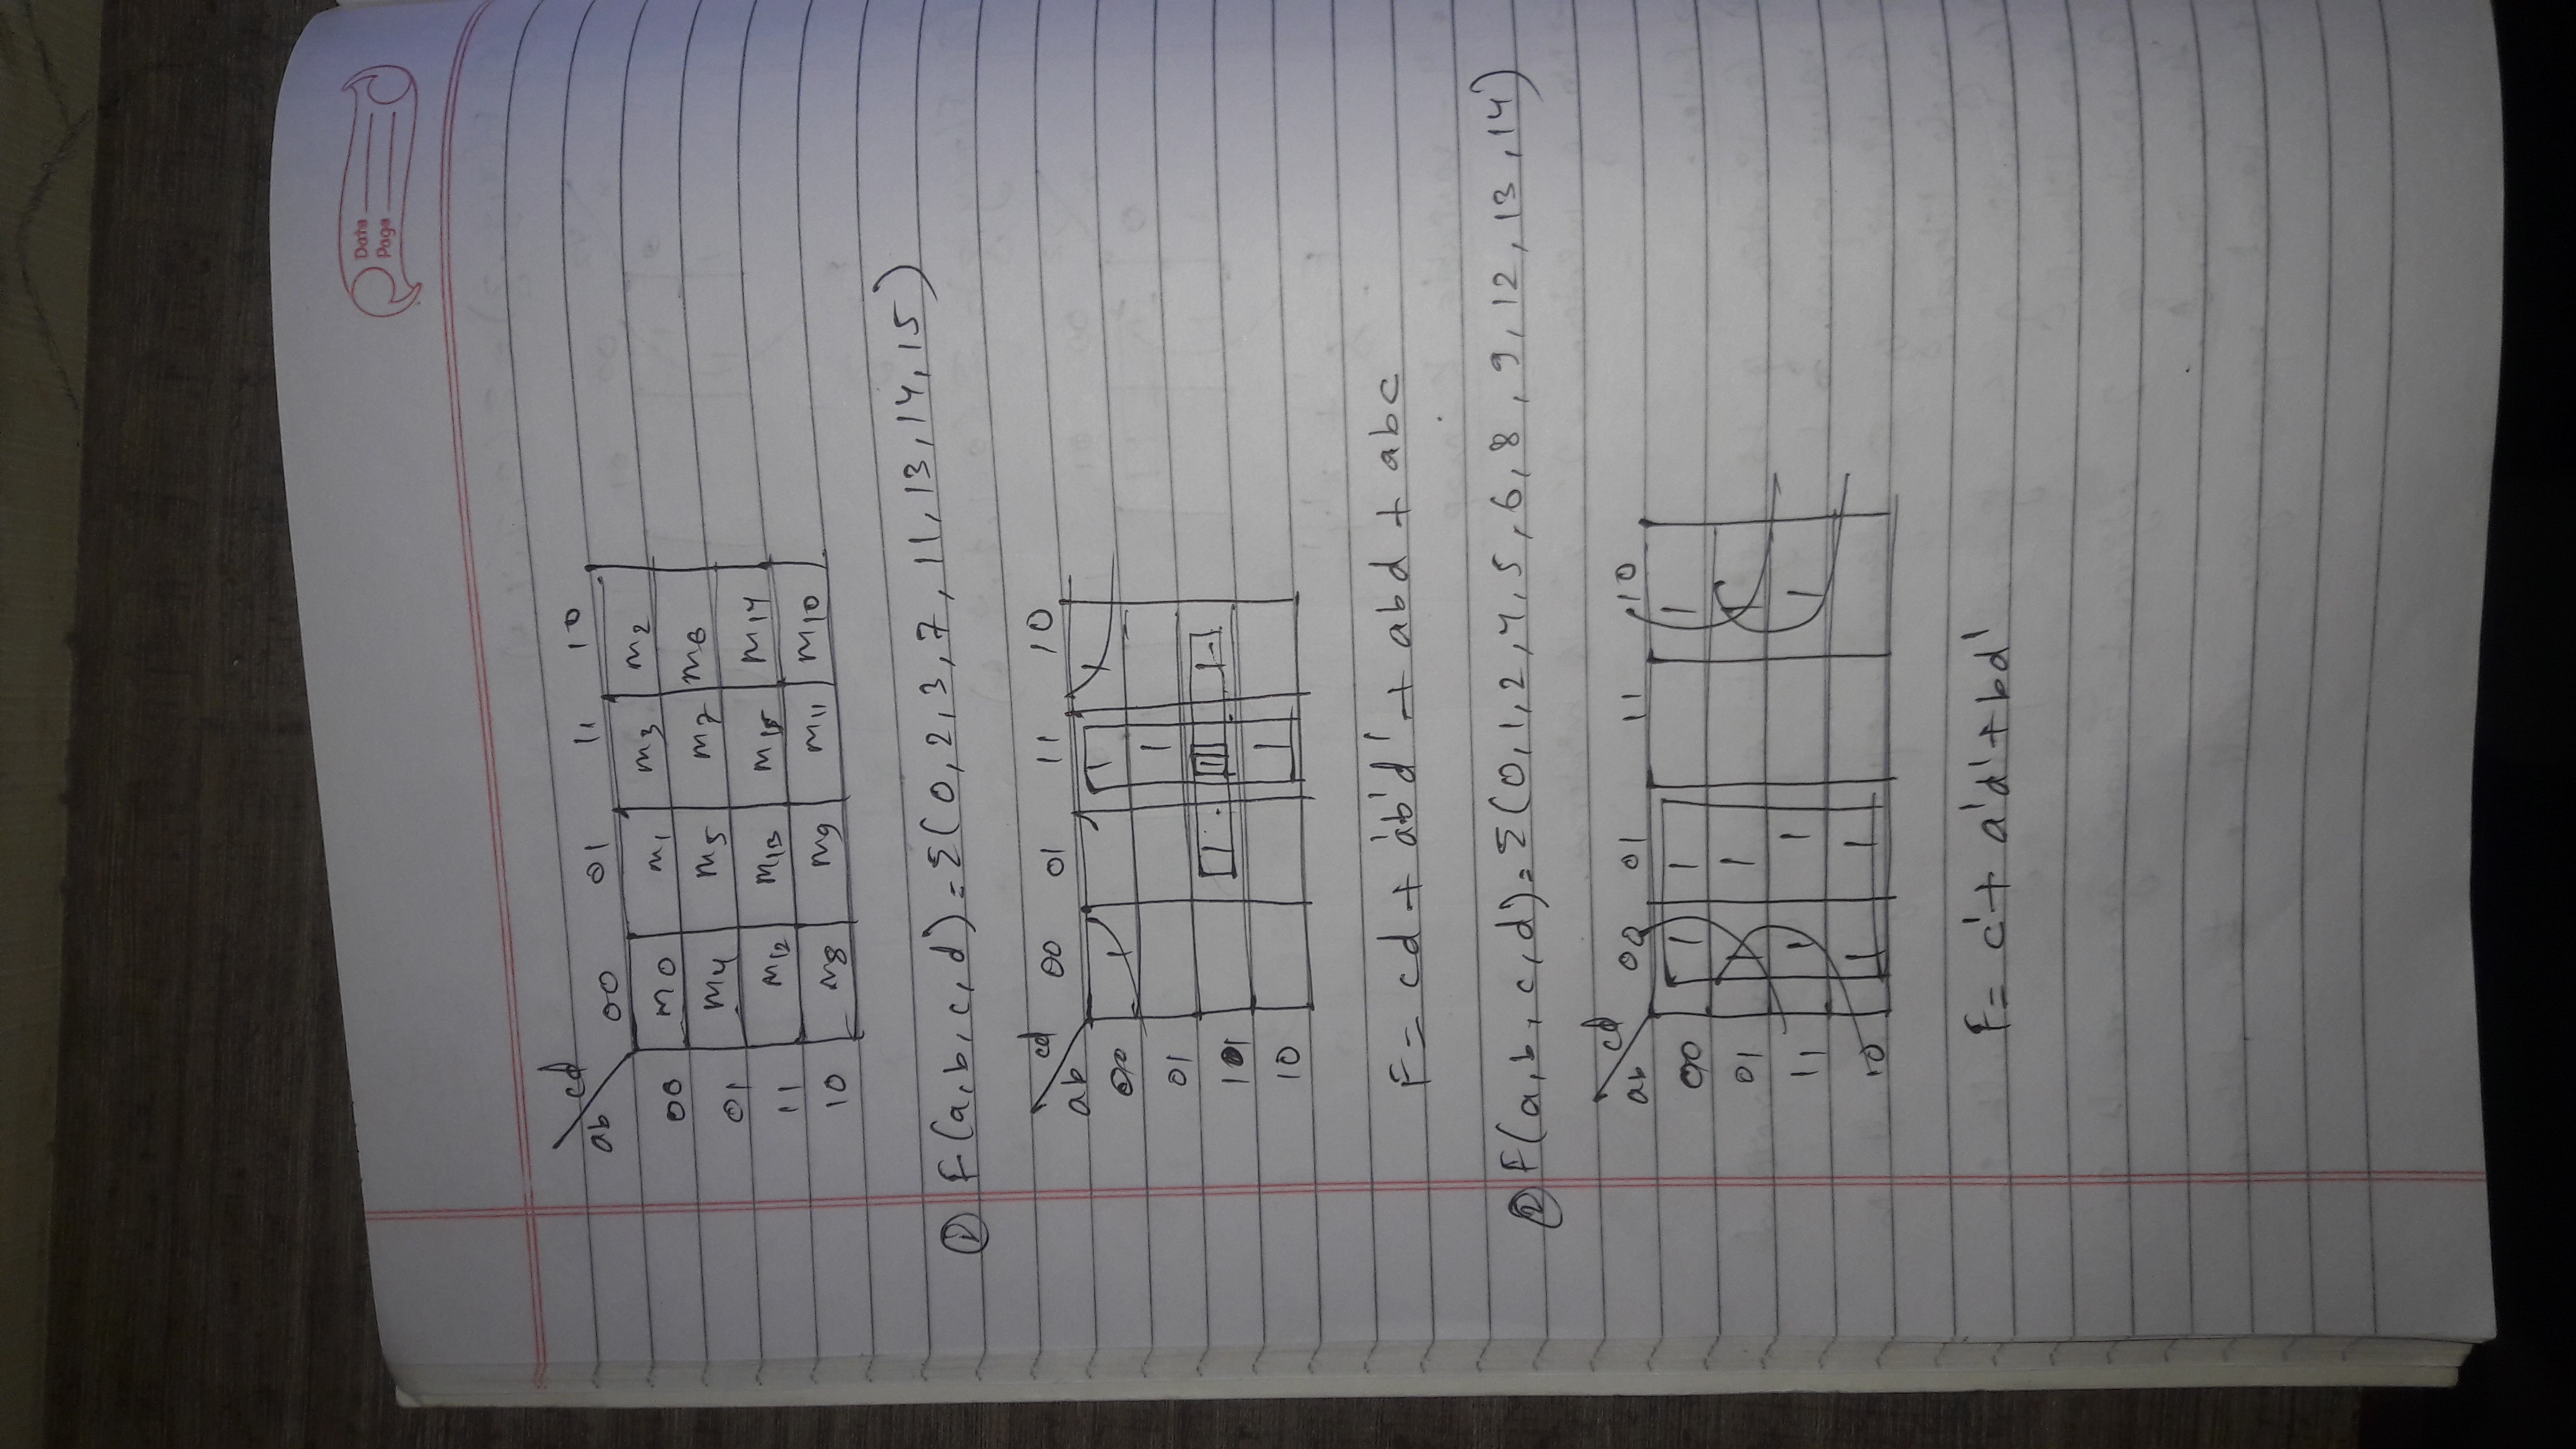 Date
Page
cd
ab 00 01 11 10
00 m0 m1 m3 m2
01 m4 m5 m7 m6
11 m12 m13 m15 m14
10 m8 m9 m11 m10
① F(a,b,c,d) = Σ(0,2,3,7,11,13,14,15)
cd
ab 00 01 11 10
00 1 1 1
01 1
11 1 1 1
10 1
F = cd + a'b'd' + abd + abc
② F(a,b,c,d) = Σ(0,1,2,4,5,6,8,9,12,13,14)
cd
ab 00 01 11 10
00 1 1 1
01 1 1 1
11 1 1 1
10 1 1
F = c' + a'd' + bd'